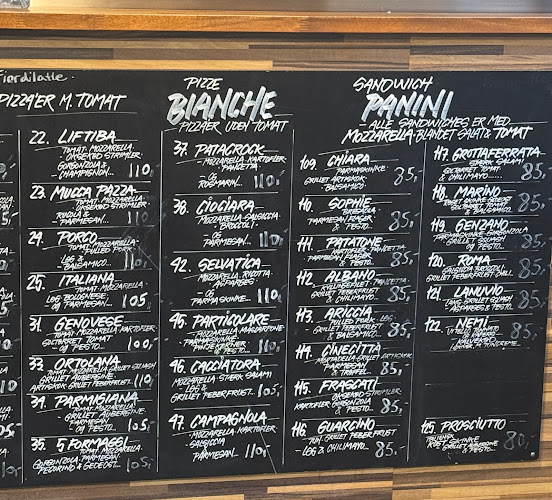 Fiordilatte.
PIZZA'ER M. TOMAT
22. LIFTIBA
TOMAT. MOZZARELLA.
OKSEKØD STRIMLER
GORGONZOLA &
CHAMPIGNON. 110,-
23. MUCCA PAZZA
TOMAT. MOZZARELLA
OKSEKØD STRIMLER
RUCOLA &
PARMESAN. 110,-
24. PORCO
TOMAT. MOZZARELLA.
PULLED PORK
LØG &
BALSAMICO. 110,-
25. ITALIANA
TOMAT. MOZZARELLA.
LØG BOLOGNESE
OG PARMESAN. 105,-
31. GENOVESE
TOMAT. MOZZARELLA. KARTOFLER.
SOLTØRRET TOMAT
OG PESTO. 100,-
33. ORTOLANA
TOMAT. MOZZARELLA GRILLET SQUASH
GRILLET AUBERGINE &
ARTISKOK. GRILLET PEBERFRUGT. 110,-
34. PARMIGIANA
TOMAT. MOZZARELLA.
GRILLET AUBERGINE.
PARMESAN &
PESTO. 105,-
35. 5 FORMAGGI
TOMAT. MOZZARELLA.
GORGONZOLA. PARMESAN.
PECORINO & GEDEOST. 105,-
PIZZE
BIANCHE
PIZZA'ER UDEN TOMAT
37. PATACROCK
MOZZARELLA. KARTOFLER
PANCETTA
OG
ROSMARIN. 110,-
38. CIOCIARA
MOZZARELLA SALSICCIA
BROCCOLI
PARMESAN. 110,-
42. SELVATICA
MOZZARELLA. RICOTTA.
ASPARGES
&
PARMASKINKE. 110,-
45. PARTICOLARE
MOZZARELLA. MASCARPONE
PARMASKINKE
PINJEKERNER
& PESTO. 110,-
46. CACCIATORA
MOZZARELLA. STÆRK SALAMI
LØG &
GRILLET PEBERFRUGT. 105,-
47. CAMPAGNOLA
MOZZARELLA. KARTOFLER
SALSICCIA
&
PARMESAN. 110,-
SANDWICH
PANINI
ALLE SANDWICHES ER MED
MOZZARELLA. BLANDET SALAT & TOMAT
109. CHIARA
PARMASKINKE.
GRILLET ARTISKOK &
BALSAMICO. 85,-
110. SOPHIE
BRESAOLA
PARMESAN
PESTO. 85,-
111. PATATONE
PANCETTA
PARMESAN
85,-
112. ALBANO
KYLLINGEFILET PANCETTA
GRILLET PEBERFRUGT
& CHILIMAYO. 85,-
113. ARICCIA
LØG
GRILLET PEBERFRUGT
& BALSAMICO 85,-
114. CINECITTÀ
MORTADELLA. GRILLET ARTISKOK
PARMESAN
& TRØFFEL. 85,-
115. FRASCATI
OKSEKØD STRIMLER
KARTOFLER GORGONZOLA
& PESTO. 85,-
116. GUARCINO
TUN. GRILLET PEBERFRUGT
LØG & CHILIMAYO. 85,-
117. GROTTAFERRATA
STÆRK SALAMI
SOLTØRRET TOMAT
& CHILIMAYO. 85,-
118. MARINO
SOLTØRRET TOMAT
& BALSAMICO. 85,-
119. GENZANO
PARMASKINKE. GORGONZOLA
GRILLET SQUASH
& PESTO. 85,-
120. ROMA
SALSICCIA BROCCOLI
GRILLET PEBERFRUGT & CHILI. 85,-
121. LANUVIO
GRILLET SQUASH
ASPARGES & PESTO. 85,-
122. NEMI
85,-
125. PROSCIUTTO
80,-